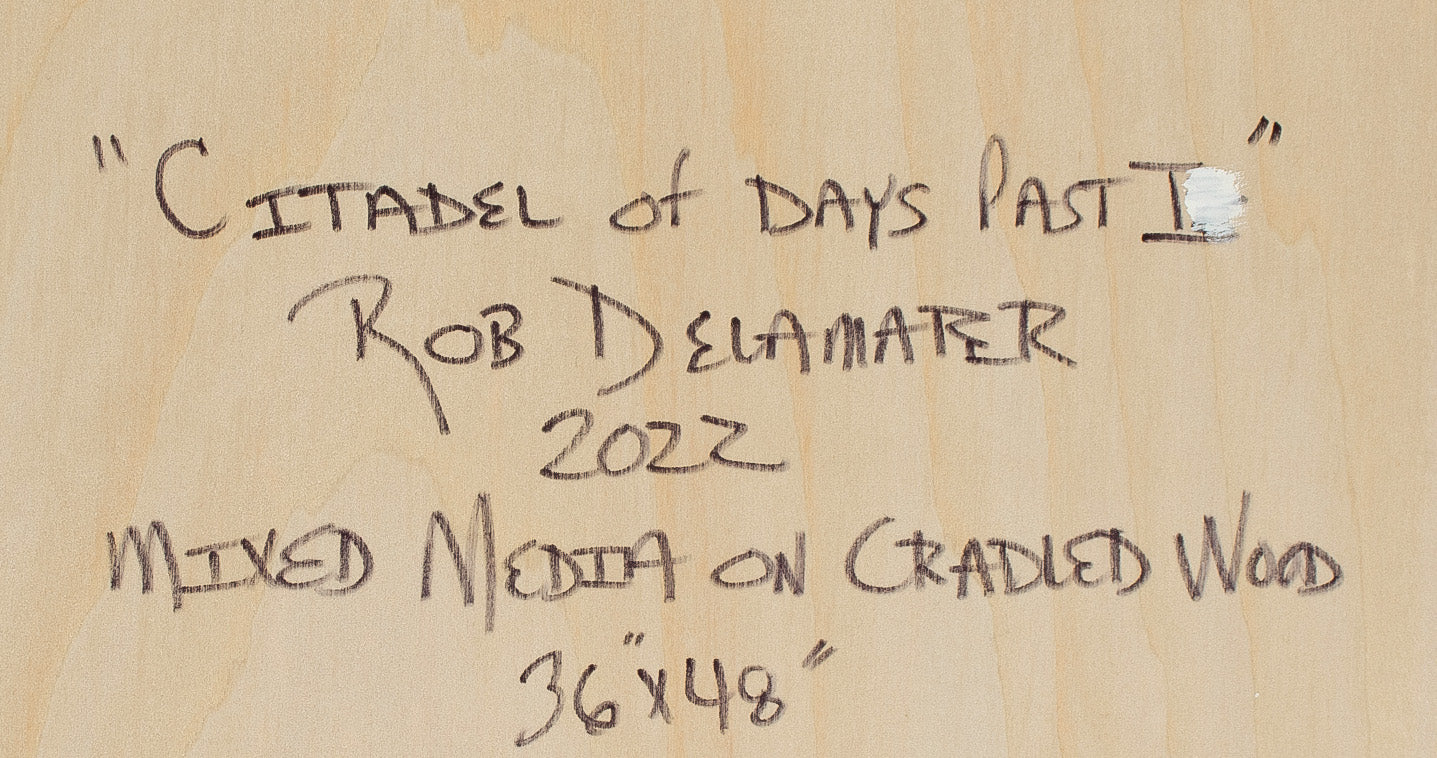 "Citadel of Days Past I"
Rob Delamater
2022
Mixed Media on Cradled Wood
36"x48"